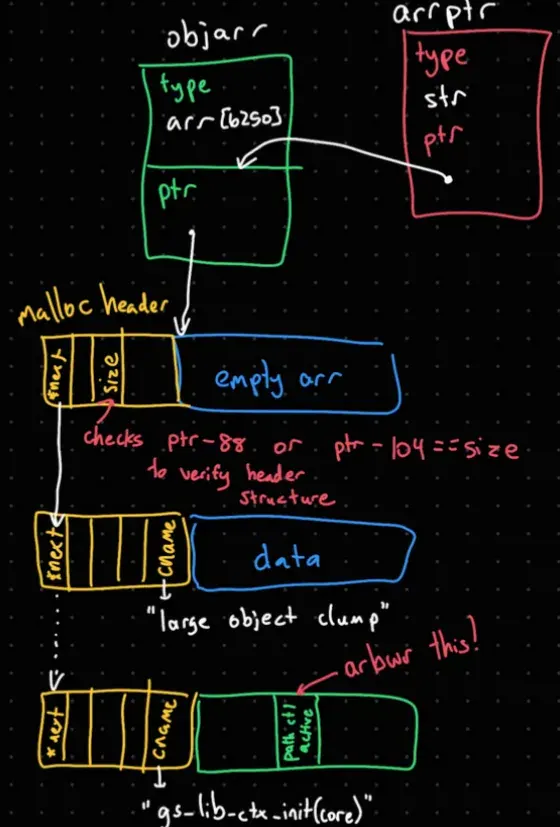 objarr
arrptr
type
arr[6250]
ptr
type
str
ptr
malloc header
*next
size
empty arr
checks ptr-88 or ptr-104==size
to verify header
structure
*next
cname
data
"large object clump"
arbwr this!
*next
cname
path ctl
active
"gs-lib-ctx-init(core)"